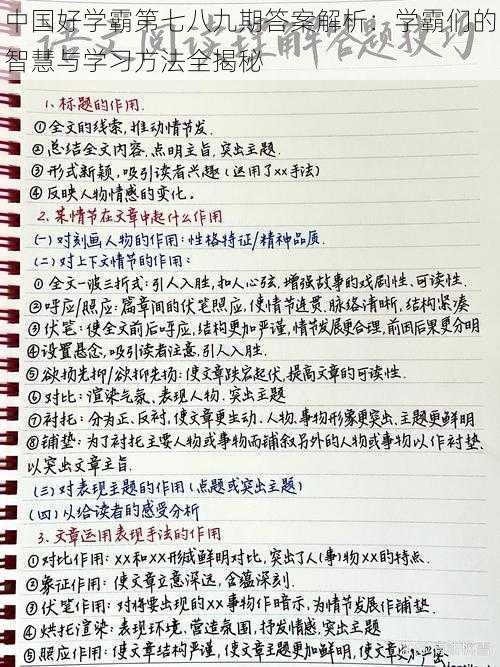 中国好学霸第七八九期答案解析：学霸们的
智慧与学习方法全揭秘
语文阅读理解答题技巧
1、标题的作用.
①全文的线索,推动情节发.
②总结全文内容.点明主旨,突出主题.
③形式新颖,吸引读者兴趣(运用了xx手法)
④反映人物情感的变化。
2.某情节在文章中起什么作用
(一)对刻画人物的作用:性格特征/精神品质.
(二)对上下文情节的作用:
①全文一波三折式:引人入胜,扣人心弦,增强故事的戏剧性、可读性.
②呼应/照应:篇章间的伏笔照应,使情节连贯.脉络清晰,结构紧凑
③伏笔:使全文前后呼应,结构更加严谨,情节发展更合理,前因后果更分明
④设置悬念,吸引读者注意,引人入胜.
⑤欲扬先抑/欲抑先扬:使文章跌宕起伏,提高文章的可读性.
⑥对比:渲染气氛、表现人物、突出主题
⑦衬托:分为正、反衬,使文章更生动.人物.事物形象更突出.主题更鲜明
⑧铺垫:为了衬托主要人物或事物而铺叙另外的人物或事物以作衬垫.
以突出文章主旨.
(三)对表现主题的作用(点题或突出主题)
(四)以给读者的感受分析
3.文章运用表现手法的作用
①对比作用:xx和xx形成鲜明对比,突出了人(事)物xx的特点.
②象征作用:使文章立意深远,含蕴深刻.
③伏笔作用:对将要出现的xx事物作暗示,为情节发展作铺垫.
④烘托渲染:表现环境,营造氛围,抒发情感,突出主题
⑤照应作用:使文章结构严谨,使文章主题更加鲜明,使文章